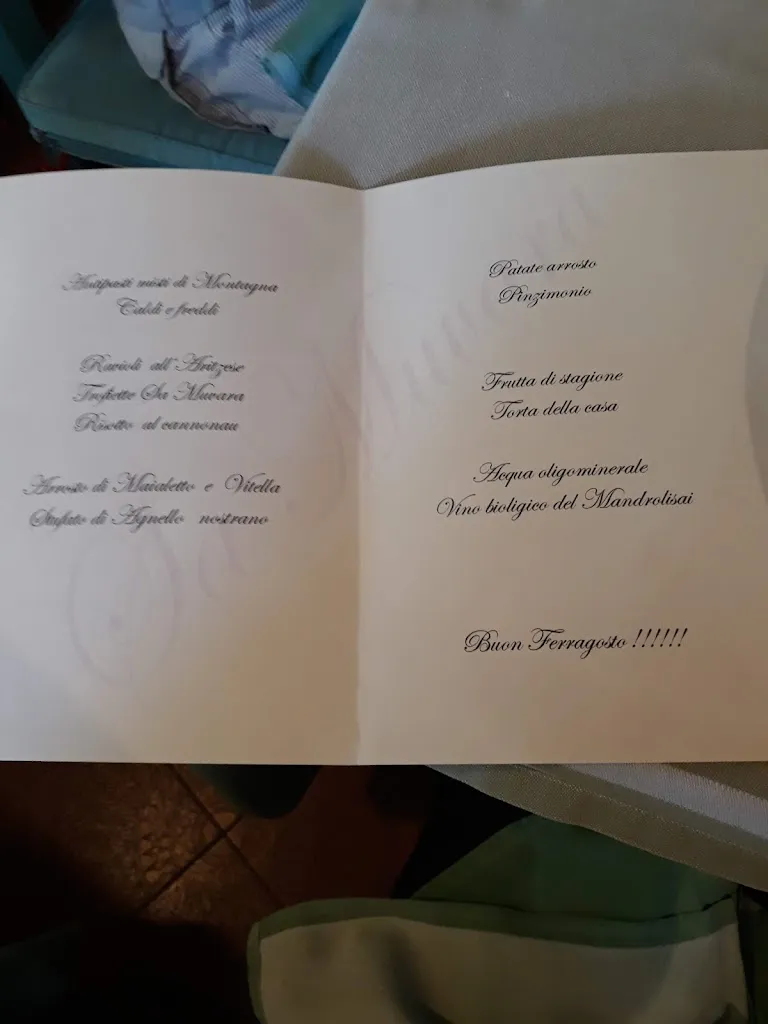 Antipasti misti di Montagna
Caldi e freddi
Ravioli all'Aritzese
Trofiette Sa Muvara
Risotto al cannonau
Arrosto di Maialetto e Vitella
Stufato di Agnello nostrano
Patate arrosto
Pinzimonio
Frutta di stagione
Torta della casa
Acqua oligominerale
Vino bioligico del Mandrolisai
Buon Ferragosto !!!!!!
Sa Muvara